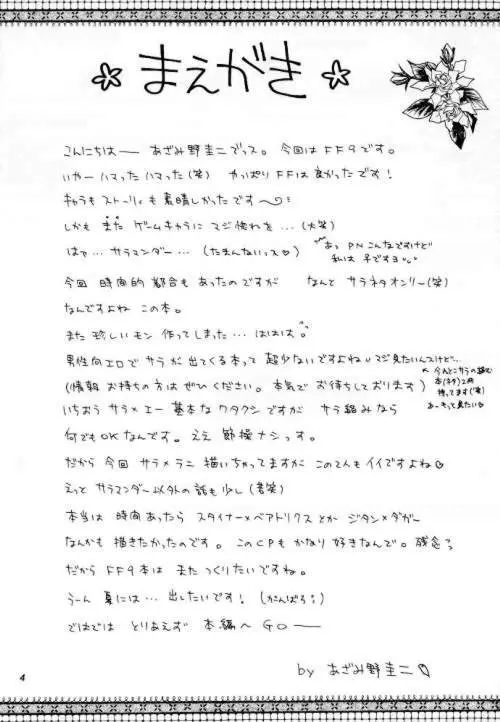 まえがき
こんにちはー あざみ野圭二でっス。今回はFF9です。
いやーハマったハマった(笑) やっぱりFFは良かったです!
キャラもストーリィも素晴しかったです〜
しかも また ゲームキャラに マジ惚れを…(大笑)
はて… サラマンダー…(たまんないっス♡)
あっ PNこんなですけど
私は 早ですョ
今回 時間的都合もあったのですが なんと サラネタオンリー(笑)
なんですよね この本。
また珍しいモン 作ってしまった… ははは。
男性向エロで サラが出てくる本って 超少ないですよね マジ見たいんスけど…
(情報 お持ちの方は ぜひください。本気で お待ちしております)
あーもっと見たい
いちおう サラ×エー 基本なワタクシですが サラ絡みなら
何でもOKなんです。ええ 節操ナシっす。
だから 今回 サラ×ラニ 描いちゃってますが この2人も イイですよね♡
えっと サラマンダー以外の話も少し(苦笑)
本当は 時間あったら スタイナー×ベアトリクスとか ジタン×ダガー
なんかも 描きたかったのです。このCPも かなり好きなんで。残念
だから FF9本は また つくりたいですね。
うーん 夏には… 出したいです!(がんばろ)
ではでは とりあえず 本編へ GOー
by あざみ野圭二
4